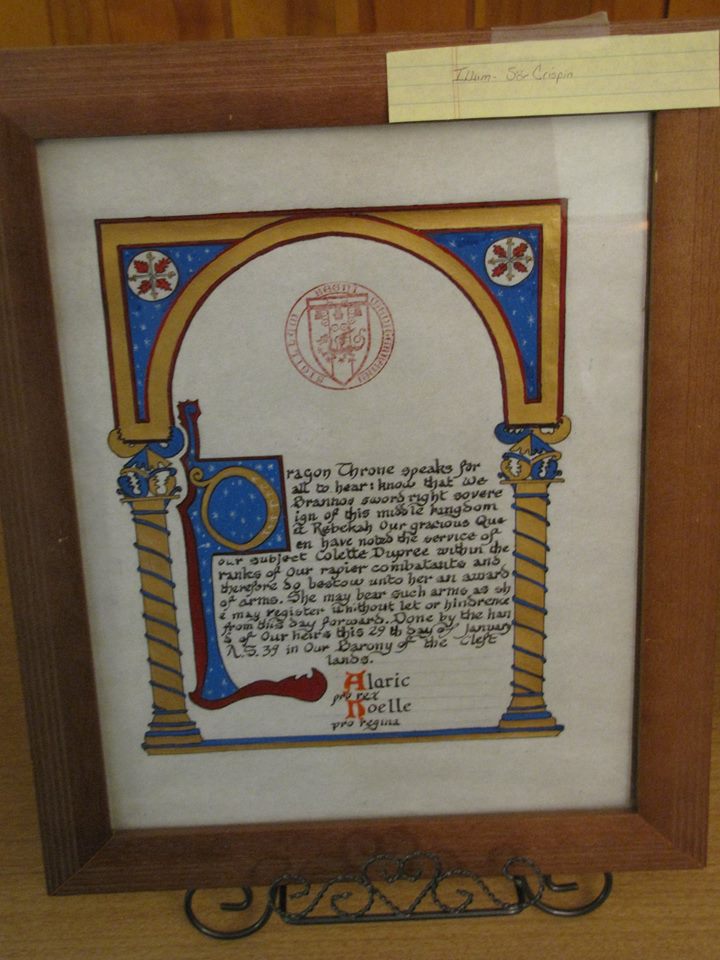 Illum - Sér Crispin
ragon Throne speaks for
all to hear: know that We
Brannos sword right sovere
ign of this middle kingdom
& Rebekah Our gracious Que
en have noted the service of
our subject Colette Dupree within the
ranks of Our rapier combatants and
therefore do bestow unto her an award
of arms. She may bear such arms as sh
e may register without let or hindrence
from this day forward. Done by the han
d of Our heirs this 29th day of January
A.S. 39 in Our Barony of the Cleft
lands.
Alaric
pro rex
Noelle
pro regina